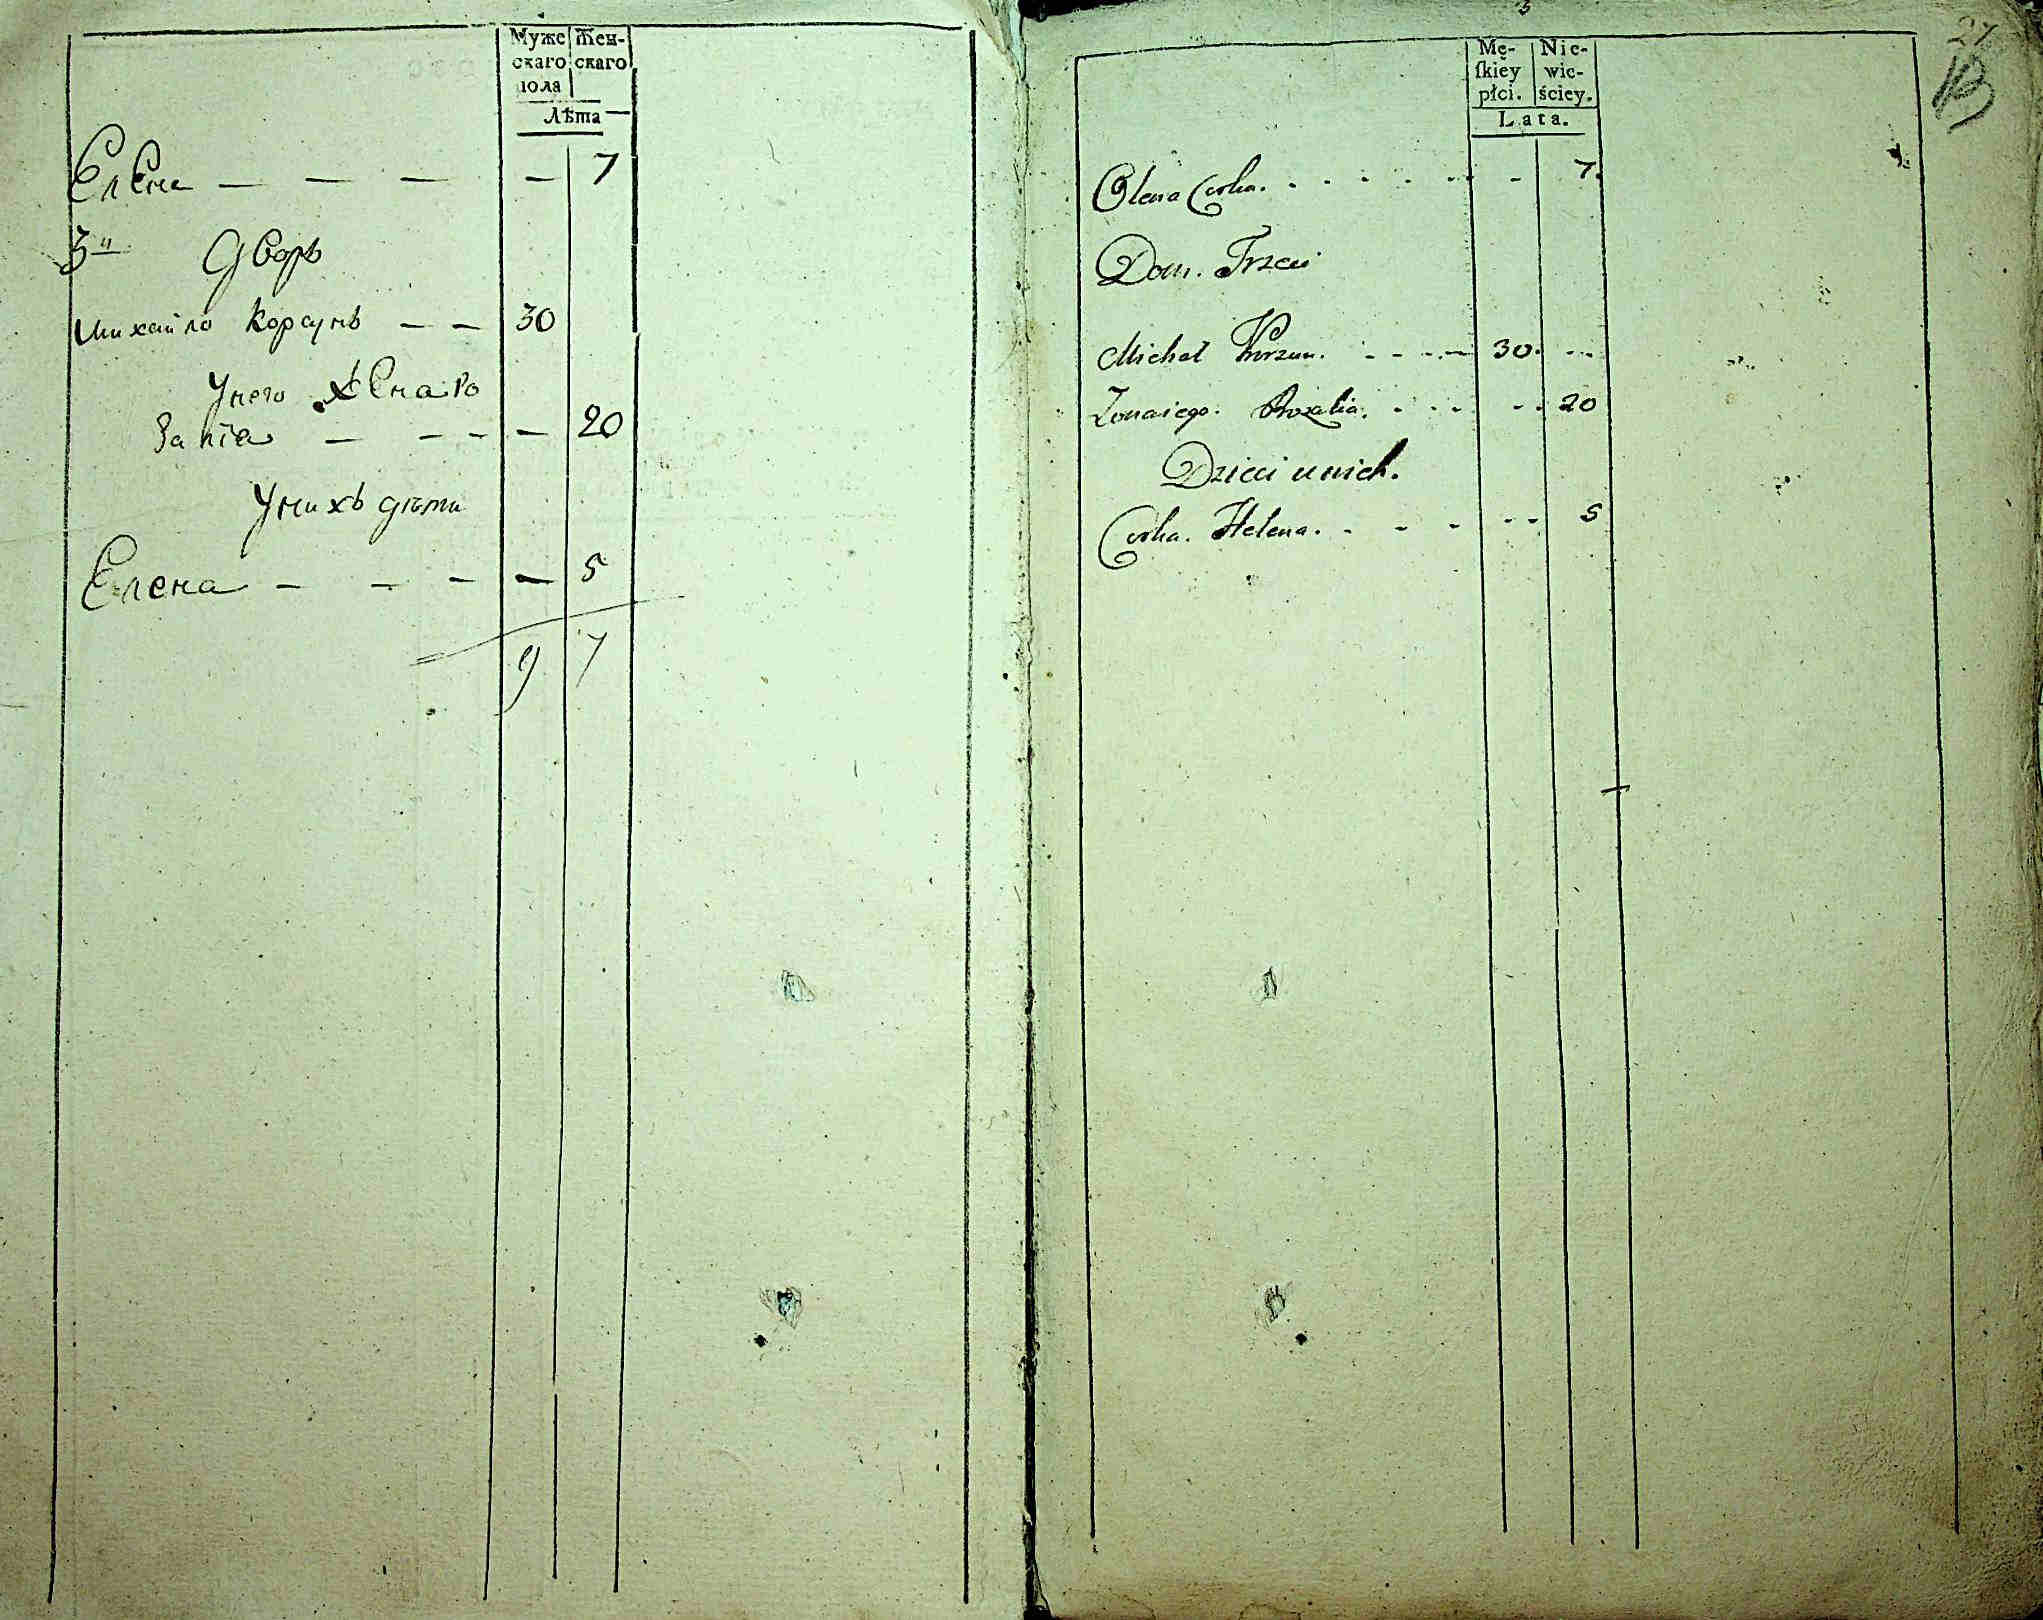 Муже Жен-
скаго скаго
пола
Лѣта
Елена — — — — 7
3й Дворъ
Михайло Корсунъ — — 30
Унего жена Ро
залїа — — — — 20
Унихъ дѣти
Елена — — — — 5
9 7
27
Mę- Nie-
ſkiey wie-
płci. ściey.
Lata.
Olena Corka. 7.
Dom. Trzeci
Michał Korzun. 30.
Żona iego. Rozalia. 20
Dzieci unich.
Corka. Helena. 5